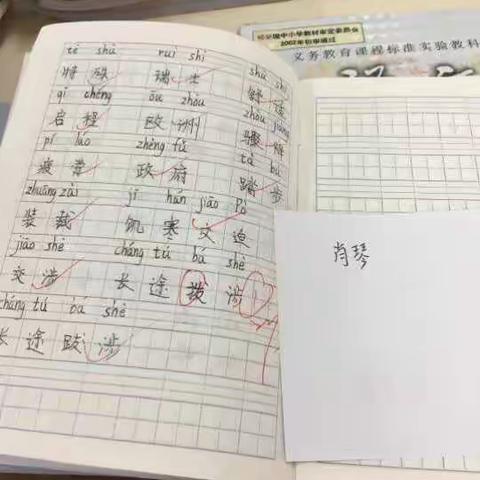 经全国中小学教材审定委员会
2002年初审通过
义务教育课程标准实验教科
tè shū ruì shì shū shì
特殊 瑞士 舒适
qǐ chéng ōu zhōu zhòu jiàng
启程 欧洲 骤降
pí láo zhèng fǔ tà bù
疲劳 政府 踏步
zhuāng zài jī hán jiāo pò
装载 饥寒文迫
jiāo shè cháng tú bá shè
交涉 长途拨涉
cháng tú bá shè
长途跋涉
肖琴